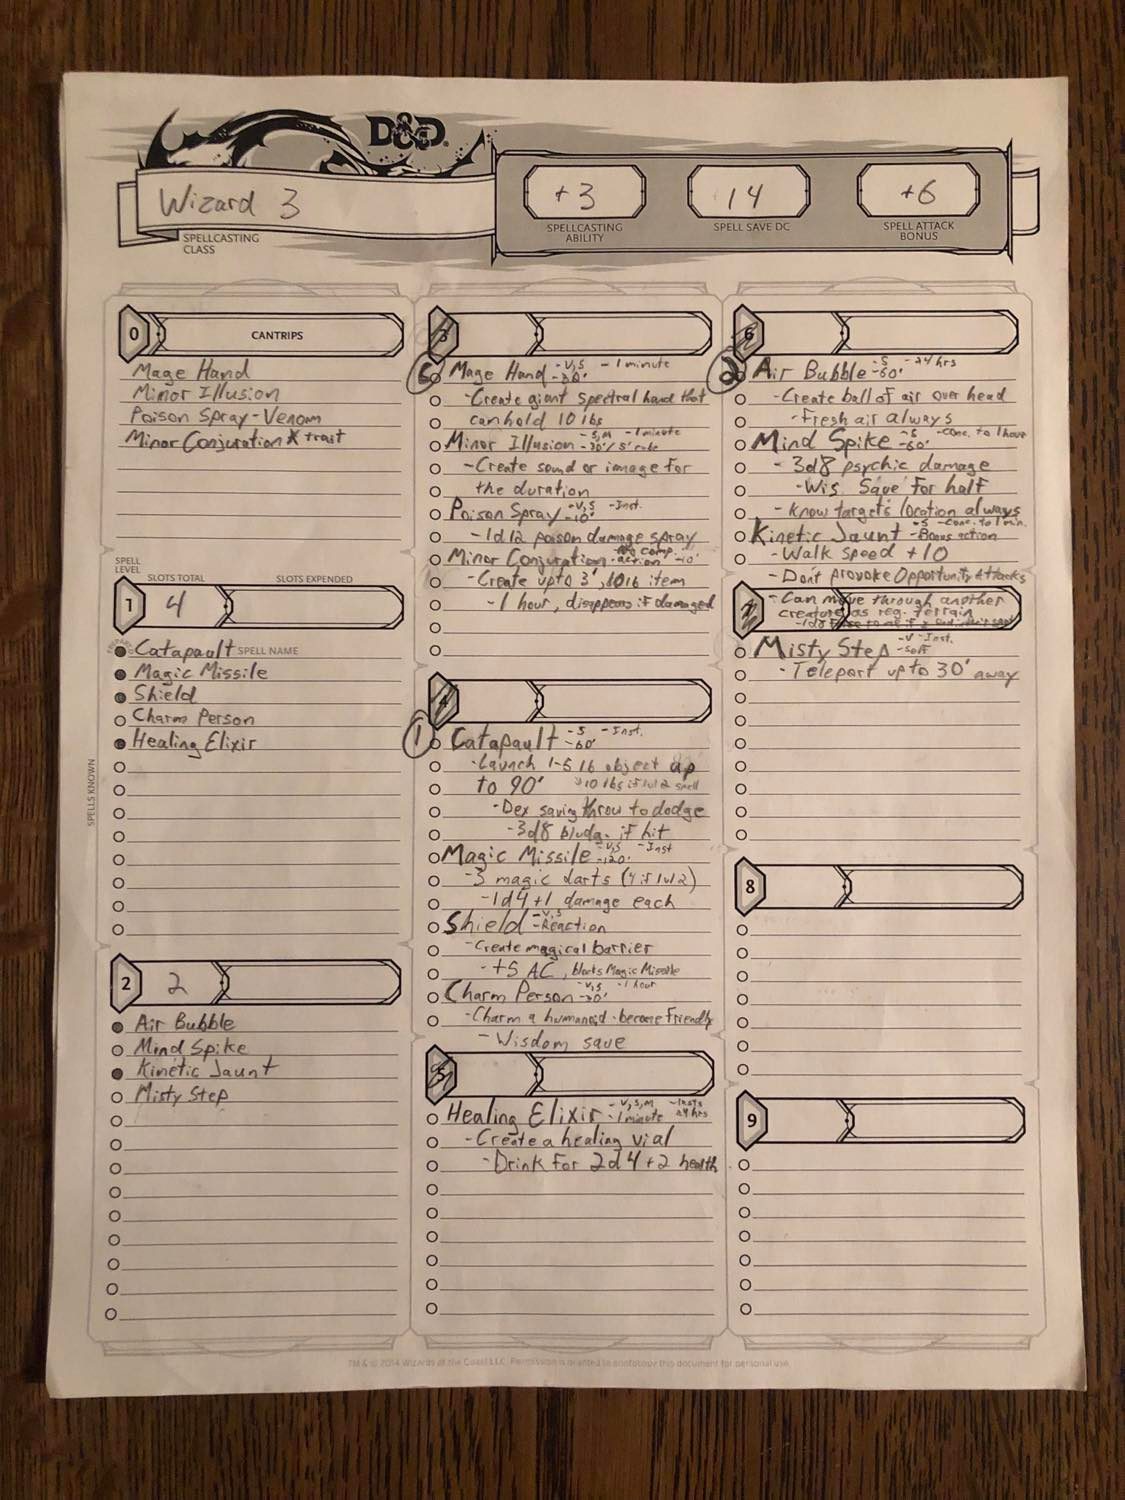 D&D
Wizard 3
SPELLCASTING
CLASS
+3
SPELLCASTING
ABILITY
14
SPELL SAVE DC
+6
SPELL ATTACK
BONUS
0
CANTRIPS
Mage Hand
Minor Illusion
Poison Spray-Venom
Minor Conjuration * trait
SPELL
LEVEL
SLOTS TOTAL
SLOTS EXPENDED
1
4
Catapault
SPELL NAME
Magic Missile
Shield
Charm Person
Healing Elixir
SPELLS KNOWN
2
2
Air Bubble
Mind Spike
Kinetic Jaunt
Misty Step
3
Mage Hand -V,S -1 minute
-30'
-Create giant spectral hand that
can hold 10 lbs
Minor Illusion -S,M -1 minute
-30'/5' cube
-Create sound or image for
the duration
Poison Spray -V,S -Inst.
-10'
-1d12 poison damage spray
Minor Conjuration -No comp.
-action -10'
-Create up to 3', 10lb item
-1 hour, disappears if damaged
4
1
Catapault -S -Inst.
-60'
-Launch 1-5 lb object up
to 90' →10 lbs if lvl 2 spell
-Dex saving throw to dodge
-3d8 bludg. if hit
Magic Missile -V,S -Inst
-120'
-3 magic darts (4 if lvl2)
-1d4+1 damage each
Shield -V,S
-Reaction
-Create magical barrier
-+5 AC, blocks Magic Missile
Charm Person -V,S -1 hour
-30'
-Charm a humanoid-become friendly
-Wisdom save
5
Healing Elixir -V,S,M
-1 minute 24 hrs
-Create a healing vial
-Drink for 2d4+2 health
6
2
Air Bubble -S -24 hrs
-60'
-Create ball of air over head
-Fresh air always
Mind Spike -S -Conc. to 1 hour
-60'
-3d8 psychic damage
-Wis. Save for half
-Know target's location always
Kinetic Jaunt -S -Conc. to 1 min.
-Bonus action
-Walk speed +10
-Don't provoke Opportunity Attacks
-Can move through another
creature as reg. terrain
Misty Step -V -Inst.
-Self
-Teleport up to 30' away
8
9
TM & © 2014 Wizards of the Coast LLC. Permission is granted to photocopy this document for personal use.